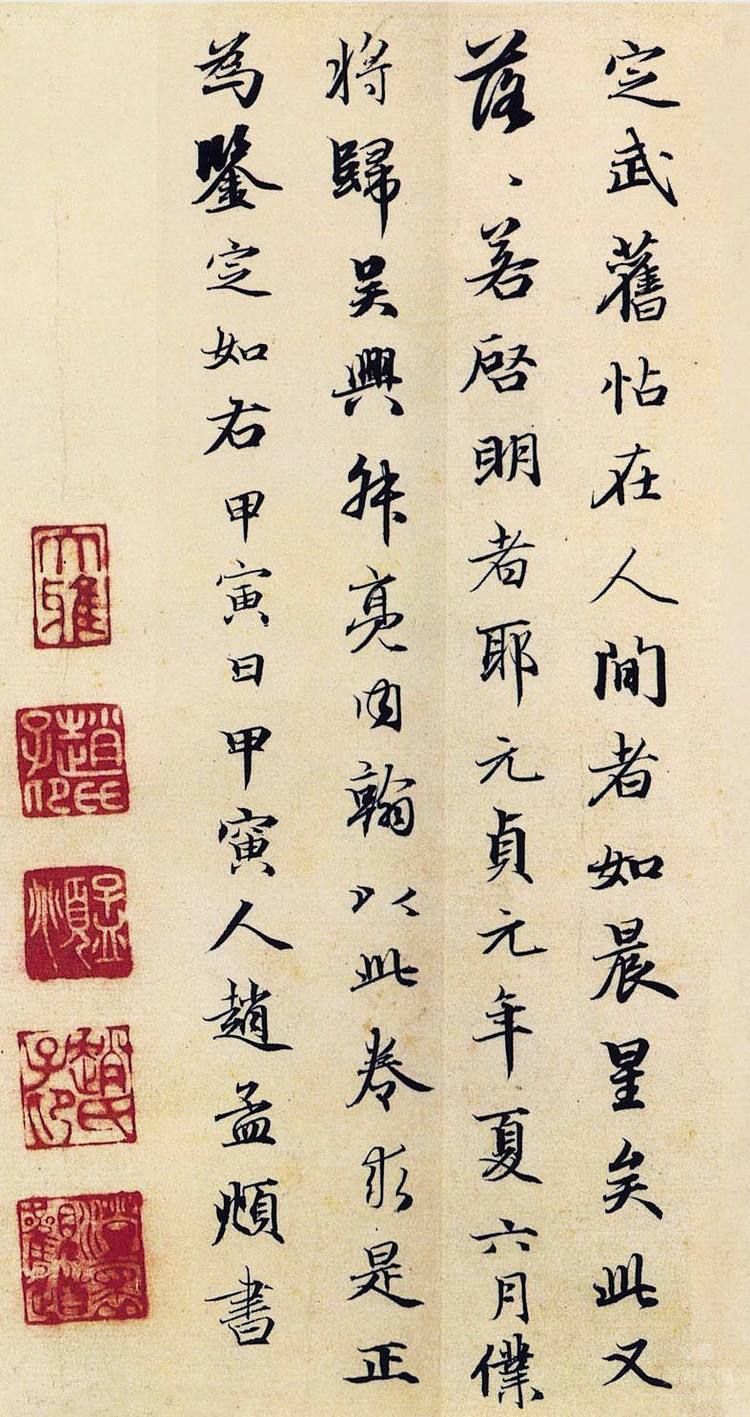 定武舊帖在人間者如晨星矣此又
落、若啓明者耶元貞元年夏六月僕
将歸吴興叔亮内翰以此卷求是正
為鑒定如右甲寅日甲寅人趙孟頫書
大雅
趙氏子印
孟頫
趙氏子印